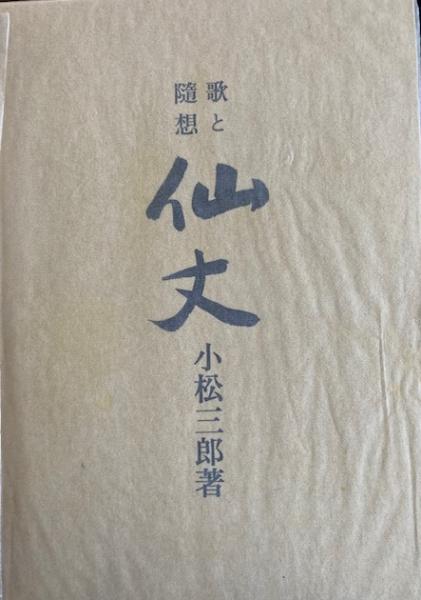 歌と
隨想
仙丈
小松三郎著